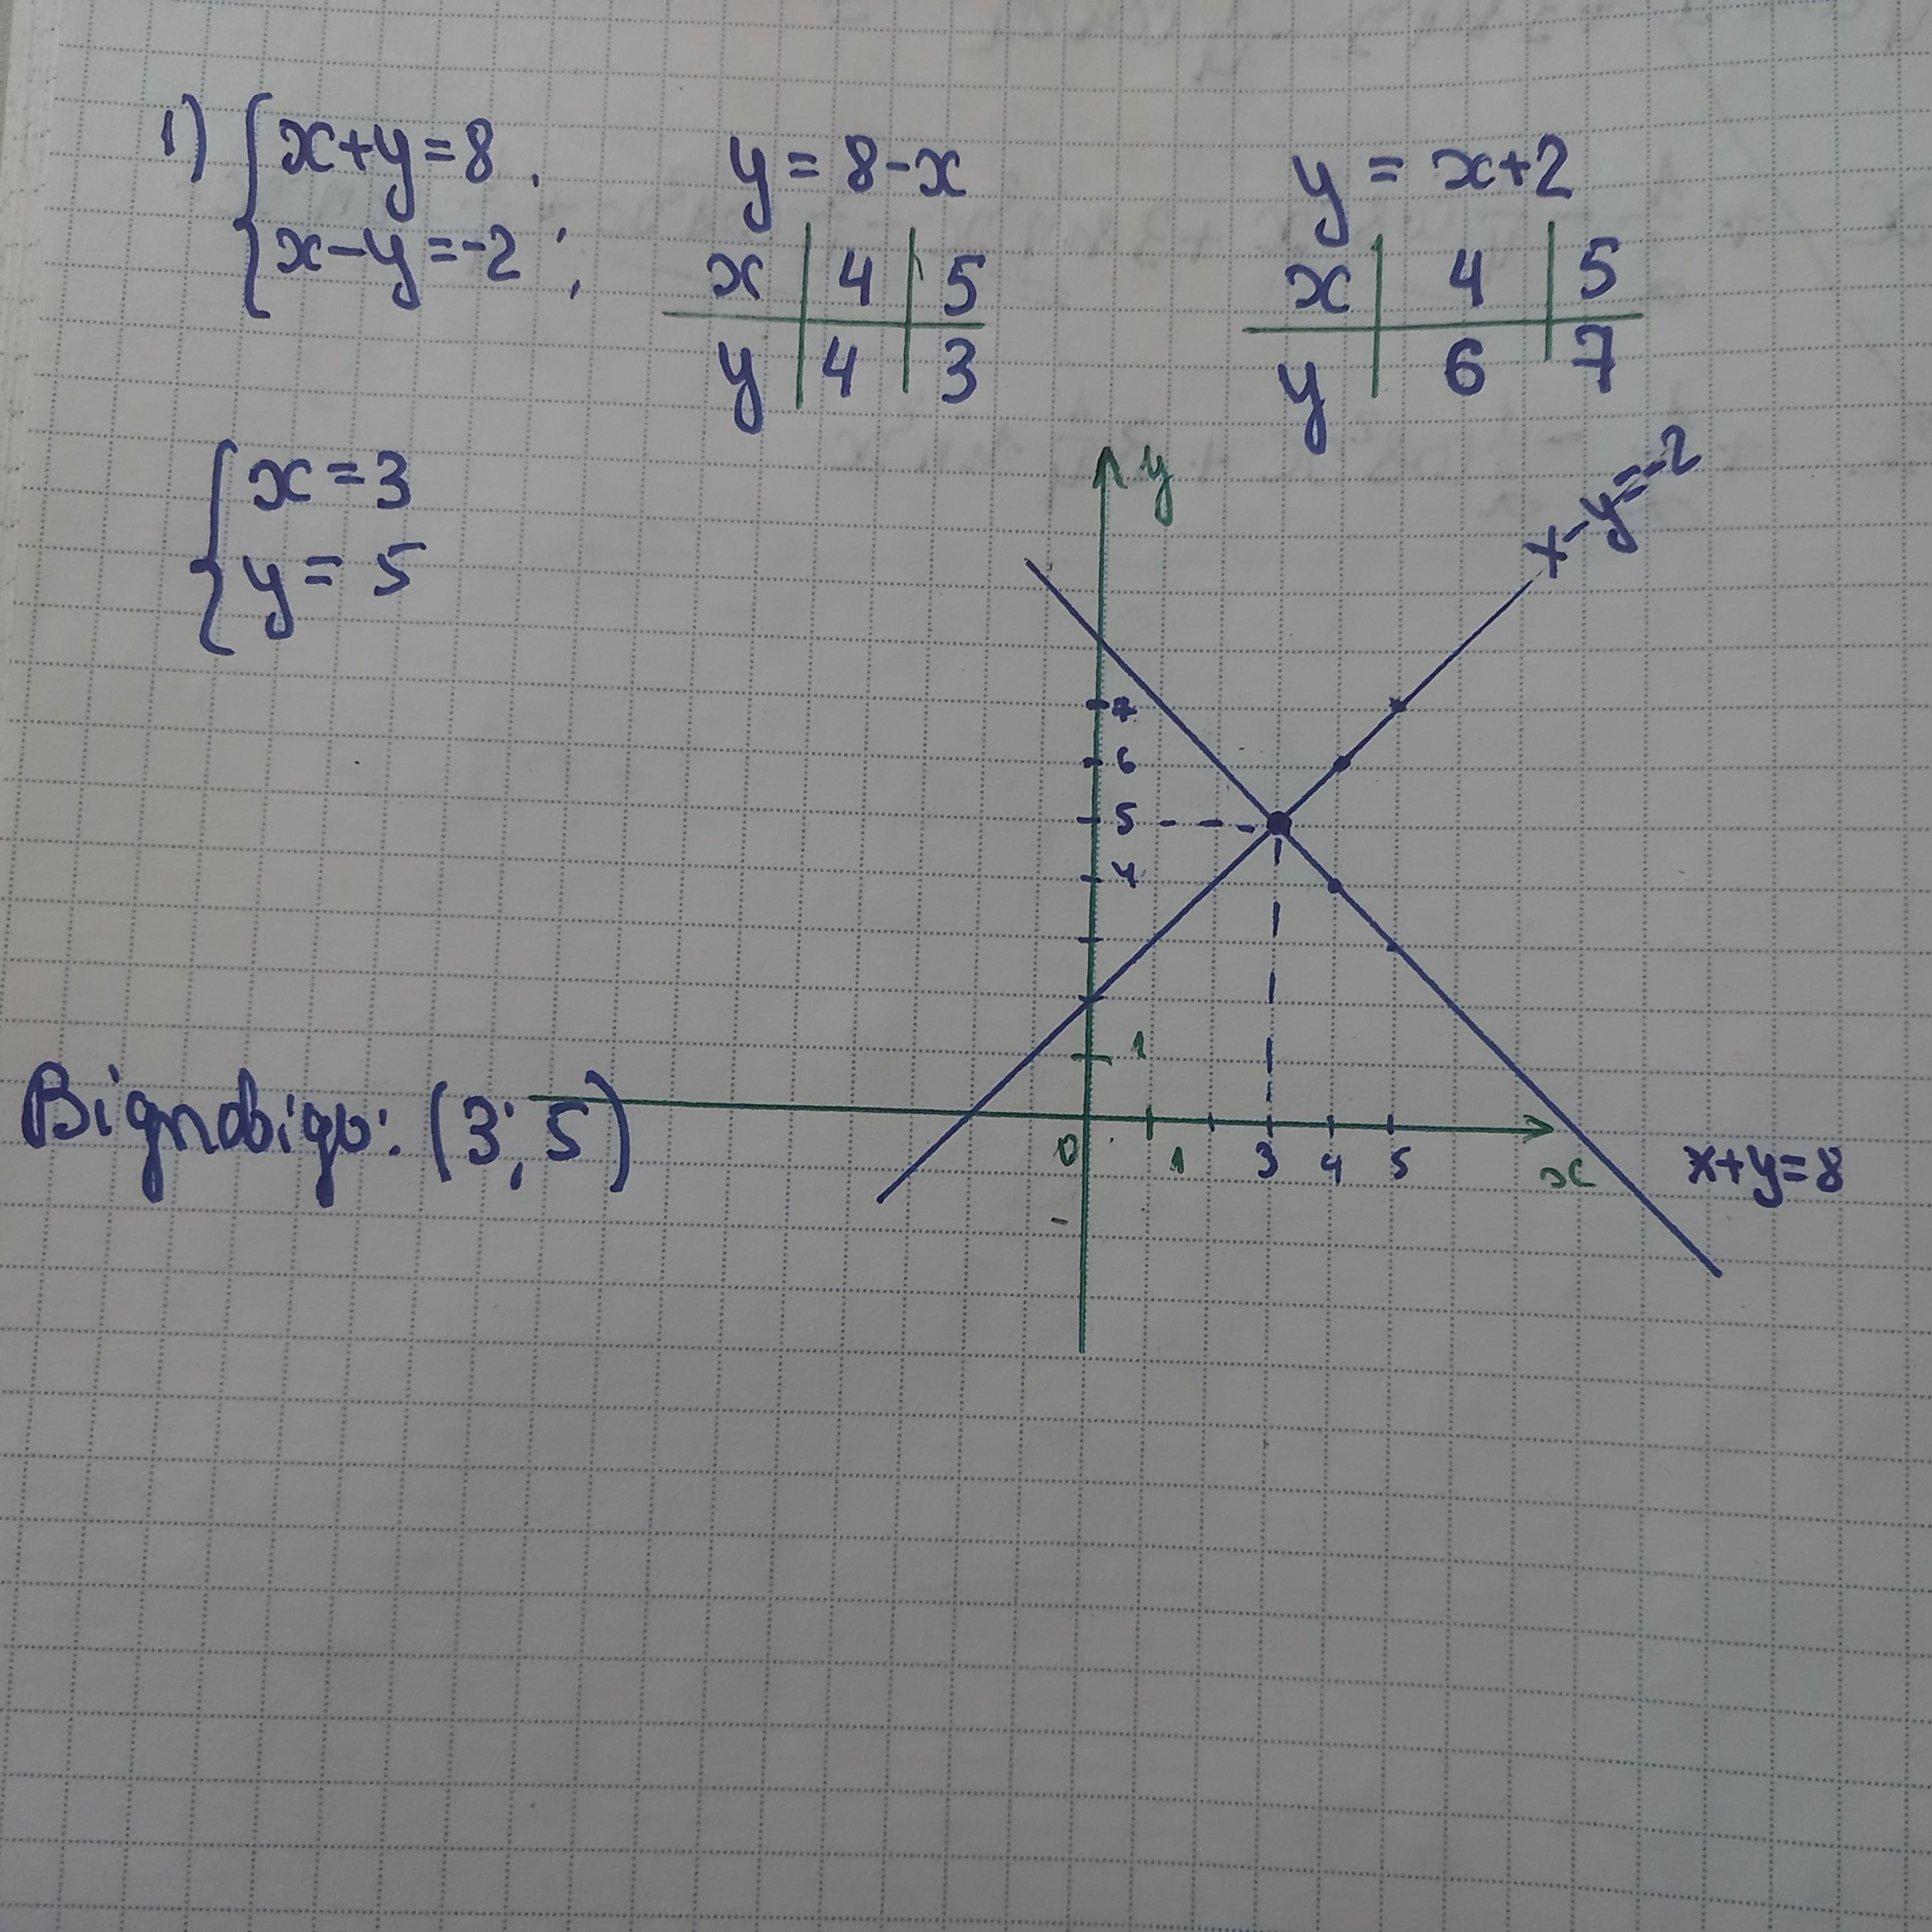 1) { x+y=8,
x-y=-2;
y = 8-x
x | 4 | 5
y | 4 | 3
y = x+2
x | 4 | 5
y | 6 | 7
{ x=3
y=5
y
x-y=-2
7
6
5
4
1
0 1 3 4 5 x
x+y=8
Відповідь: (3; 5)